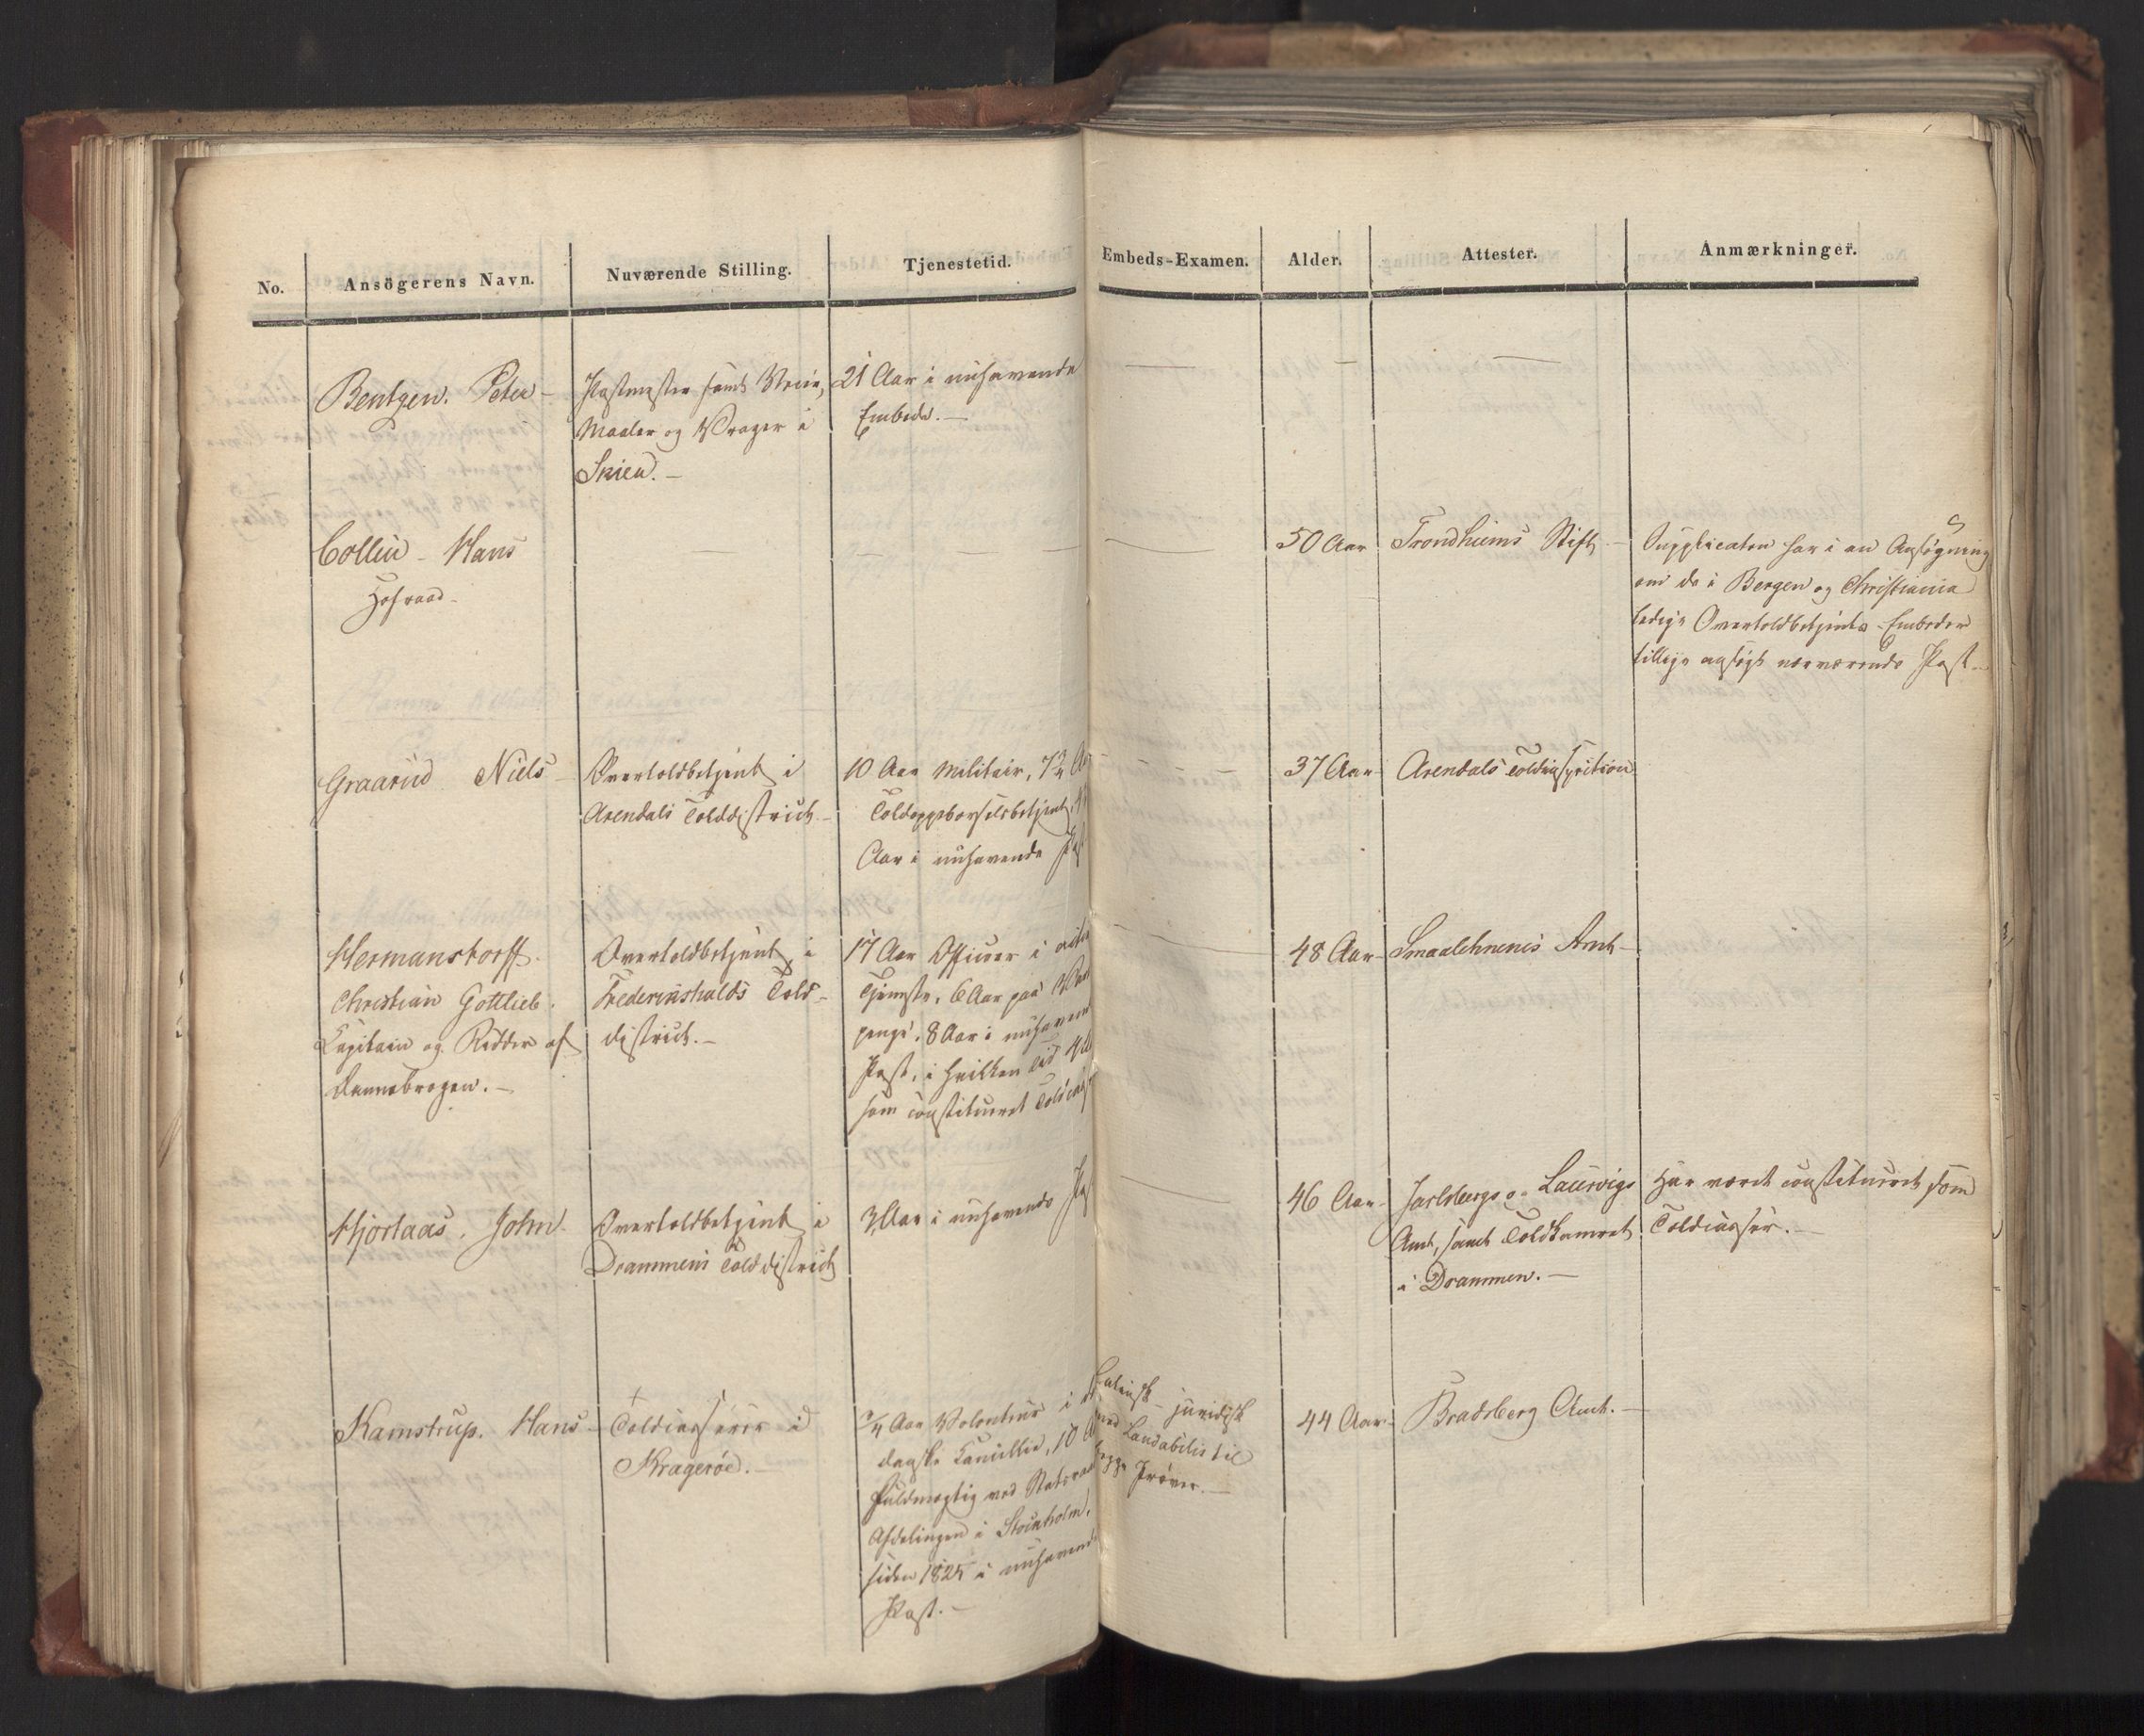 No. Ansögerens Navn. Nuværende Stilling. Tjenestetid. Embeds-Examen. Alder. Attester. Anmærkninger.
Bentzen. Peter -
Postmester samt Veier,
Maaler og Vrager i
Skien. -
21 Aar i nuhavende
Embede. -
Collin - Hans
Hofraad -
50 Aar
Trondhiems Stift -
Supplicaten har i en Ansøgning
om de i Bergen og Christiania
ledige Overtoldbetjents-Embeder
tillige ansøgt nærværende Post -
Graarud Niels -
Overtoldbetjent i
Arendals Tolddistrict -
10 Aar Militair,
Toldoppebørselsbetjent,
Aar i nuhavende Post
37 Aar -
Arendals Toldinspection
Hermanstorff.
Christian Gottlieb.
Capitain og Ridder af
Dannebrogen. -
Overtoldbetjent i
Frederikshalds Told-
district. -
17 Aar Officier i
Tjeneste, 6 Aar paa
penge, 8 Aar i
Post, i hvilken Tid
som constitueret
48 Aar -
Smaalehnenes Amt -
Hjorlaas. John.
Overtoldbetjent i
Drammens Tolddistrict
3 Aar i nuhavende Post
46 Aar -
Jarlsbergs og Laurvigs
Amt, samt Toldkamret
i Drammen. -
Har været constitueret som
Toldcasser. -
Kamstrup. Hans -
Toldcasserer i
Kragerøe. -
Aar Volonteur i
danske Cancellie, 10
Fuldmægtig ved Statsraad
Afdelingen i Stockholm,
siden 1825 i nuhavende
Post. -
Latinsk-juridisk
med Laudabilis til
begge Prøver. -
44 Aar -
Bradsberg Amt. -